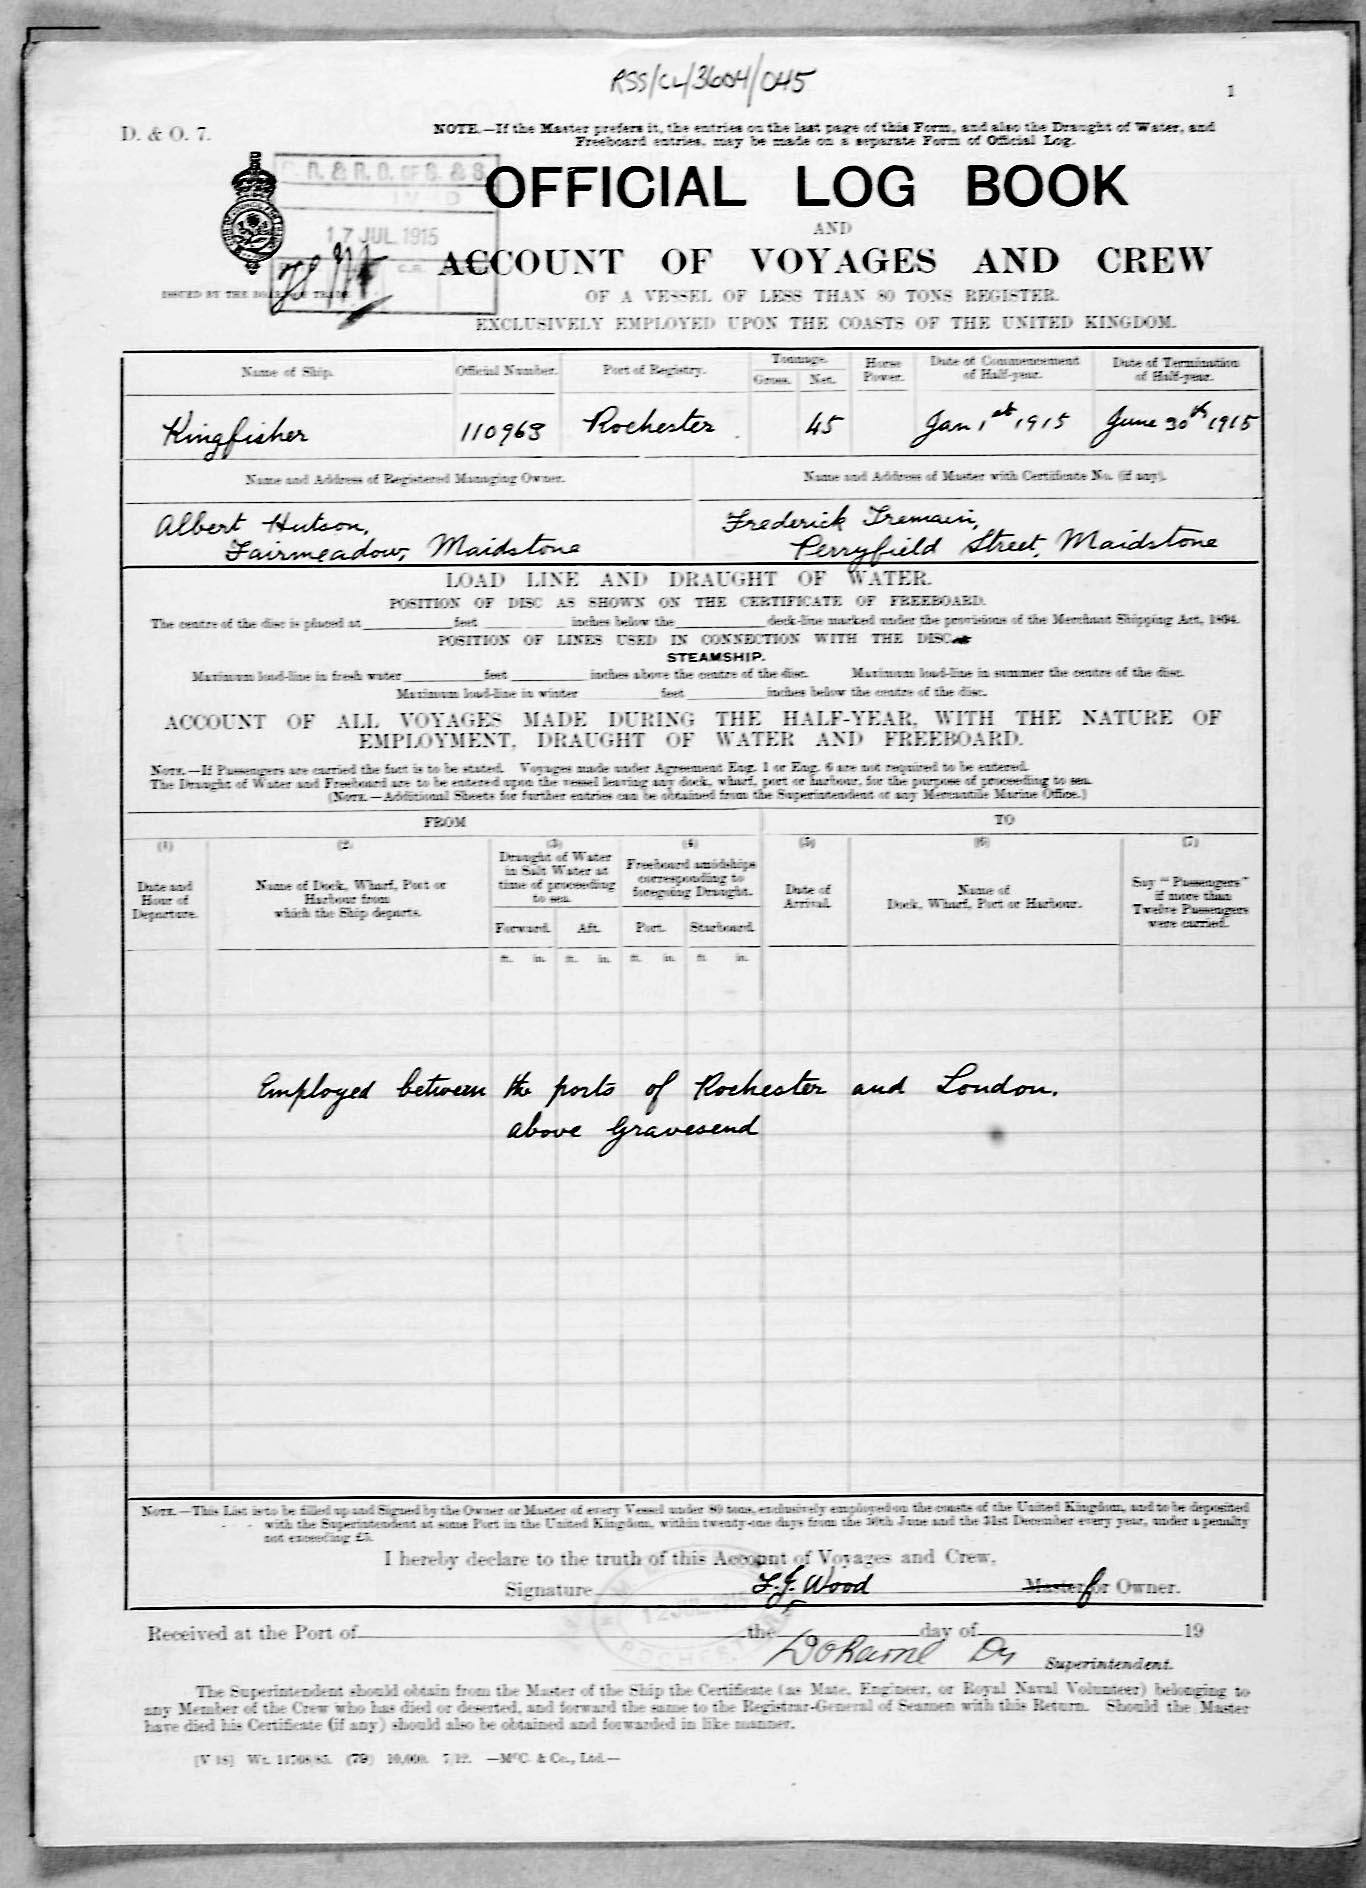 RSS/CL/3604/045
1
D. & O. 7.
NOTE.—If the Master prefers it, the entries on the last page of this Form, and also the Draught of Water, and
Freeboard entries, may be made on a separate Form of Official Log.
R. & R. O. OF S. & S.
17 JUL 1915
OFFICIAL LOG BOOK
AND
ACCOUNT OF VOYAGES AND CREW
ISSUED BY THE BOARD OF TRADE.
OF A VESSEL OF LESS THAN 80 TONS REGISTER.
EXCLUSIVELY EMPLOYED UPON THE COASTS OF THE UNITED KINGDOM.
Name of Ship. Official Number. Port of Registry. Tonnage. Gross. Net. Horse Power. Date of Commencement of Half-year. Date of Termination of Half-year.
Kingfisher 110963 Rochester 45 Jan 1st 1915 June 30th 1915
Name and Address of Registered Managing Owner. Name and Address of Master with Certificate No. (if any).
Albert Hutson, Frederick Tremain,
Fairmeadow, Maidstone Perryfield Street, Maidstone
LOAD LINE AND DRAUGHT OF WATER.
POSITION OF DISC AS SHOWN ON THE CERTIFICATE OF FREEBOARD.
The centre of the disc is placed at feet inches below the deck-line marked under the provisions of the Merchant Shipping Act, 1894.
POSITION OF LINES USED IN CONNECTION WITH THE DISC
STEAMSHIP.
Maximum load-line in fresh water feet inches above the centre of the disc. Maximum load-line in summer the centre of the disc.
Maximum load-line in winter feet inches below the centre of the disc.
ACCOUNT OF ALL VOYAGES MADE DURING THE HALF-YEAR, WITH THE NATURE OF
EMPLOYMENT, DRAUGHT OF WATER AND FREEBOARD.
NOTE.—If Passengers are carried the fact is to be stated. Voyages made under Agreement Eng. 1 or Eng. 6 are not required to be entered.
The Draught of Water and Freeboard are to be entered upon the vessel leaving any dock, wharf, port or harbour, for the purpose of proceeding to sea.
(NOTE.—Additional Sheets for further entries can be obtained from the Superintendent of any Mercantile Marine Office.)
FROM TO
(1) (2) (3) (4) (5) (6) (7)
Date and Hour of Departure. Name of Dock, Wharf, Port or Harbour from which the Ship departs. Draught of Water in Salt Water at time of proceeding to sea. Freeboard amidships corresponding to foregoing Draught. Date of Arrival. Name of Dock, Wharf, Port or Harbour. Say "Passengers" if more than Twelve Passengers were carried.
Forward. Aft. Port. Starboard.
ft. in. ft. in. ft. in. ft in.
Employed between the ports of Rochester and London.
above Gravesend
NOTE.—This List is to be filled up and Signed by the Owner or Master of every Vessel under 80 tons, exclusively employed on the coasts of the United Kingdom, and to be deposited
with the Superintendent at some Port in the United Kingdom, within twenty-one days from the 30th June and the 31st December every year, under a penalty
not exceeding £5.
I hereby declare to the truth of this Account of Voyages and Crew,
Signature F. J. Wood Master for Owner.
12 JUL 1915
ROCHESTER
Received at the Port of the day of 19
Superintendent.
The Superintendent should obtain from the Master of the Ship the Certificate (as Mate, Engineer, or Royal Naval Volunteer) belonging to
any Member of the Crew who has died or deserted, and forward the same to the Registrar-General of Seamen with this Return. Should the Master
have died his Certificate (if any) should also be obtained and forwarded in like manner.
[V 18] Wt. 11708/85. (79) 10,000. 7/12. —McC. & Co., Ltd.—